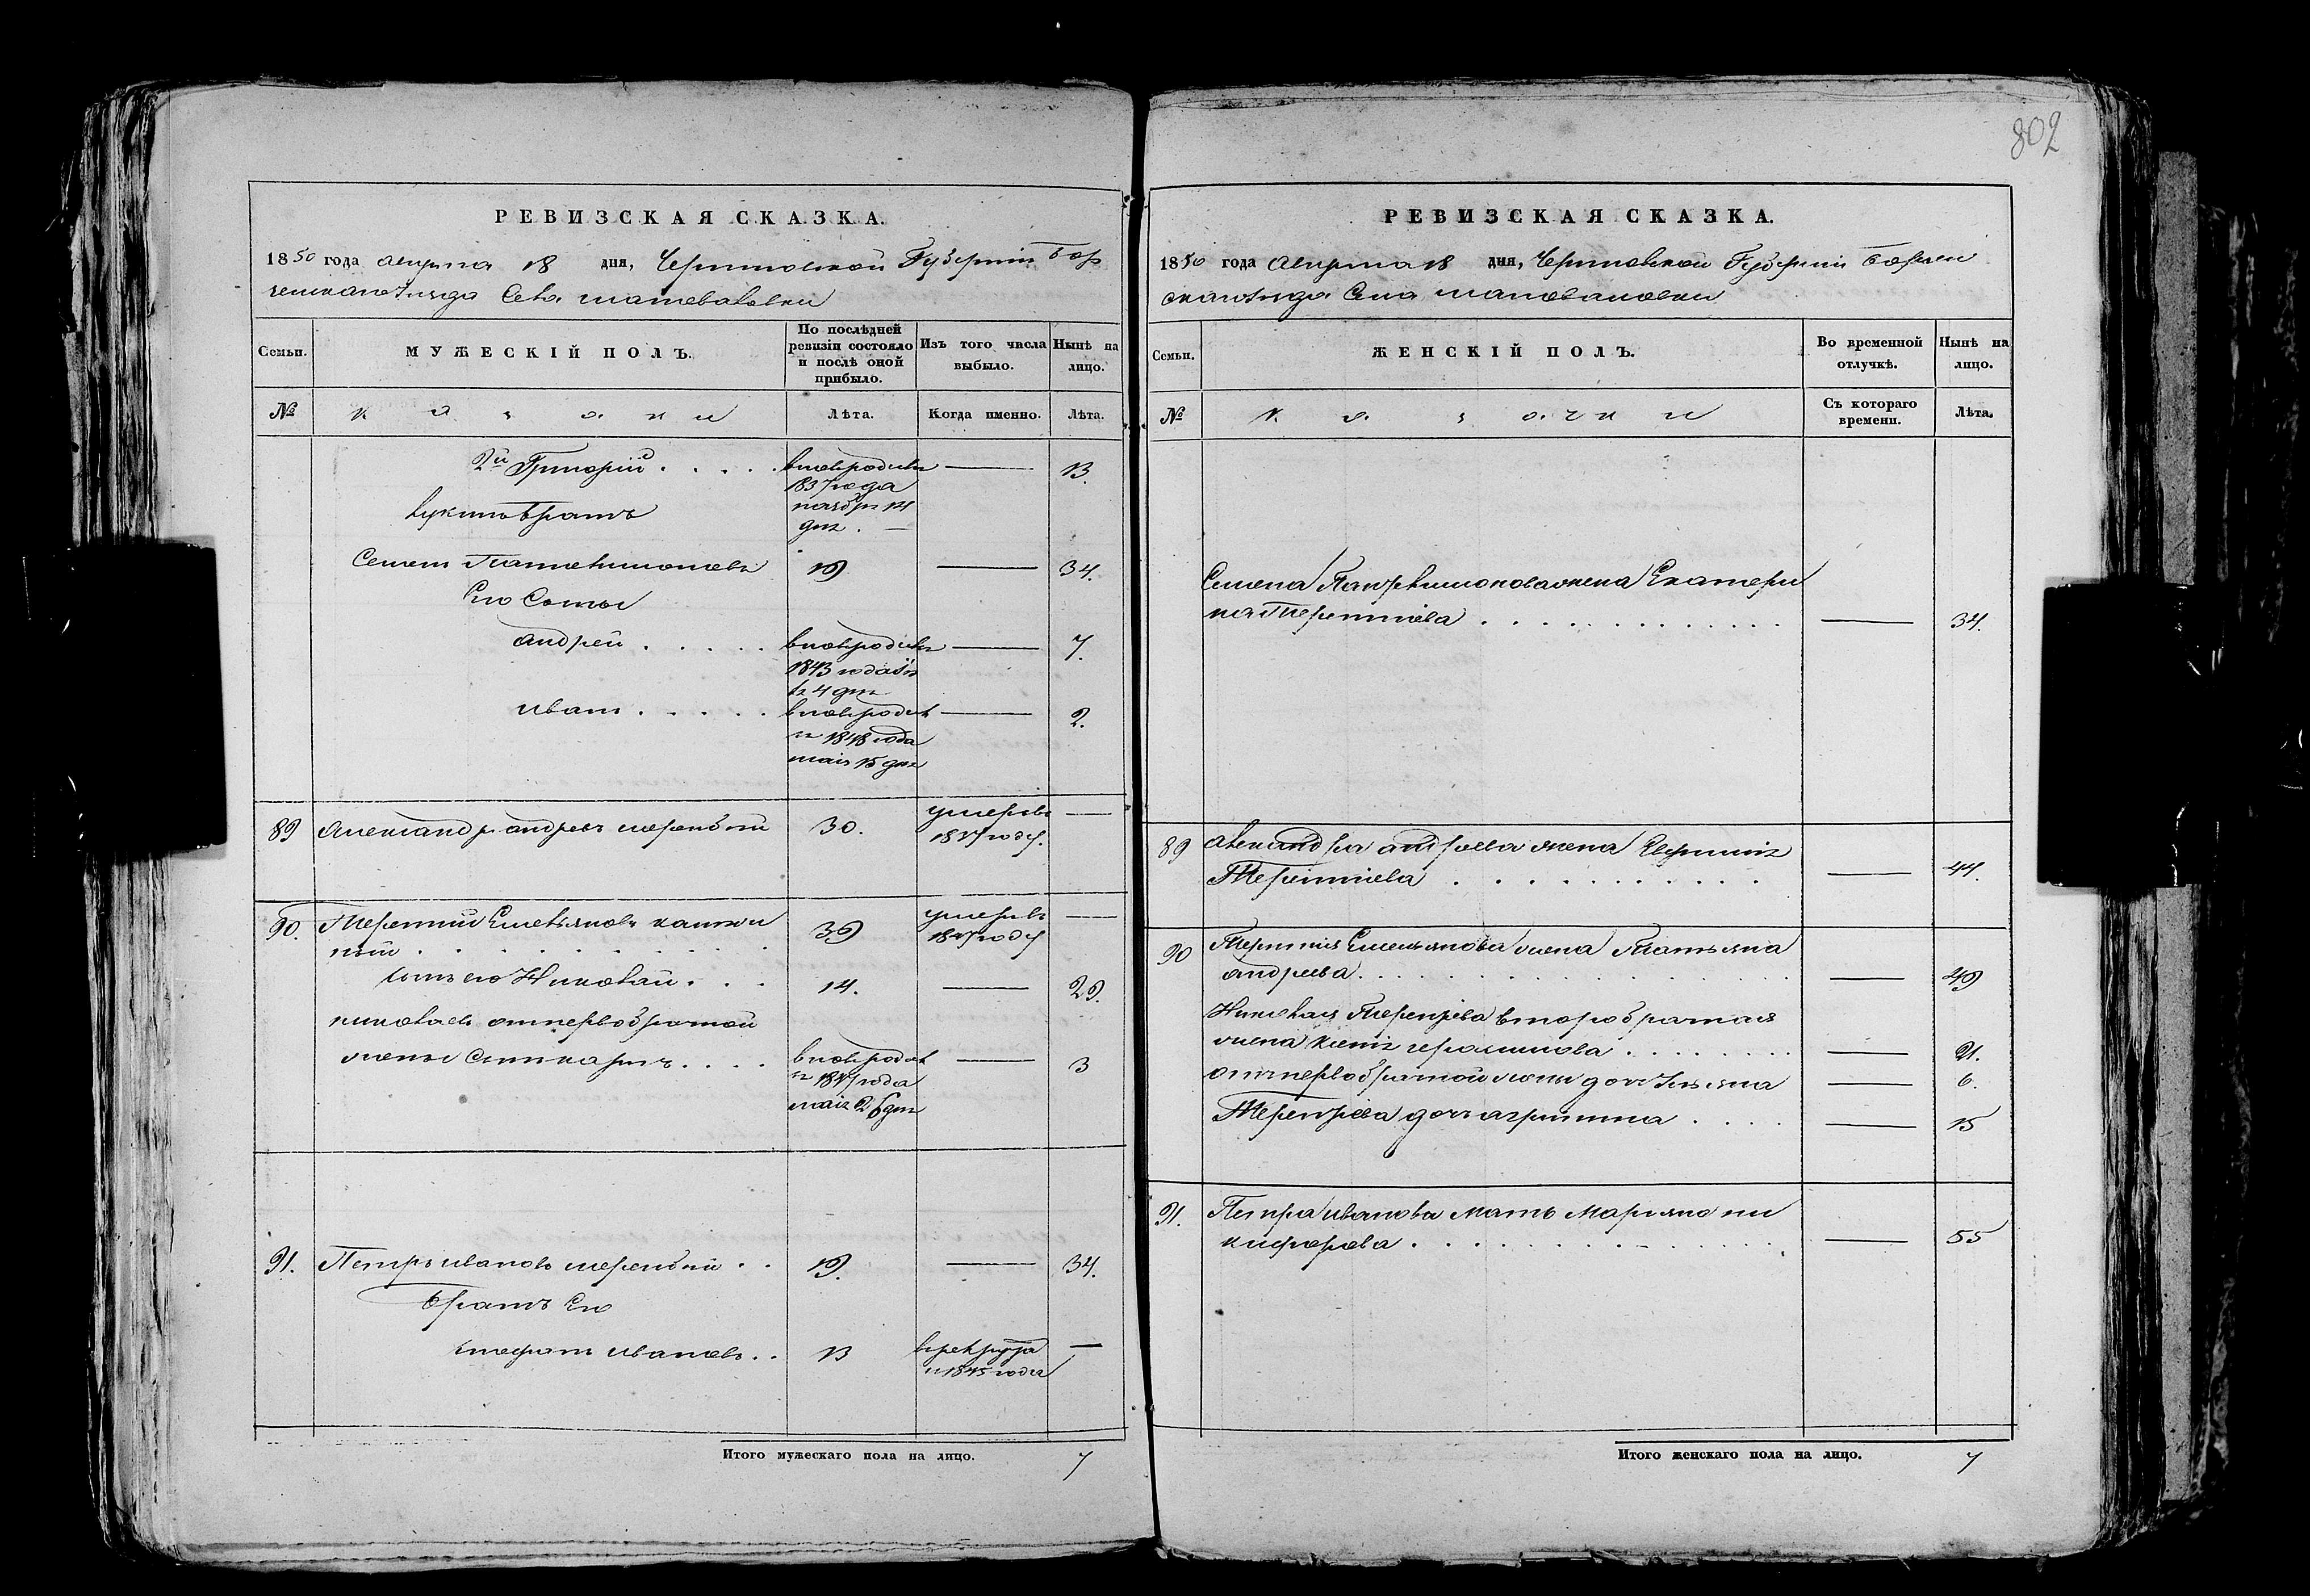 802
РЕВИЗСКАЯ СКАЗКА.
1850 года августа 18 дня, Черниговской Губернии Бор
зенскаго уезда Села
Семьи.
МУЖЕСКІЙ ПОЛЪ.
По послѣдней
ревизіи состояло
и послѣ оной
прибыло.
Изъ того числа
выбыло.
Нынѣ на
лицо.
№
казаки
Лѣта.
Когда именно.
Лѣта.
2й Григорій . . . . вновьродивш — 13.
1837 года
Лукинъ братъ
ноября 14
дня. —
Семенъ Пантелимоновъ 19 — 34.
Его Сыны
андрей . . . . . вновьродивш — 7.
1843 года
4 дня
иванъ . . . . . вновьродив — 2.
1848 года
маія 15 дня
89 Александръ андреевъ 30. умеръ въ —
1847 году.
90. Терентій Емельяновъ 39 умеръ въ —
ный 1847 году
сынъ его Николай . . . 14. — 29.
николаевъ отпервобрачной
жены Сынъ . . . . вновьродив — 3
1847 года
маія 26 дня
91. Петръ ивановъ . . 19. — 34.
Братъ Его
стефанъ ивановъ . . 13 врекрута —
1845 года
Итого мужескаго пола на лицо. 7
РЕВИЗСКАЯ СКАЗКА.
1850 года августа 18 дня, Черниговской Губернии Борзен
скаго уезда Села
Семьи.
ЖЕНСКІЙ ПОЛЪ.
Во временной
отлучкѣ.
Нынѣ на
лицо.
№
казачки
Съ котораго
времени.
Лѣта.
Семена Пантелимонова жена Екатери
на Терентіева — 34.
89 александра андреева жена
Терентіева — 44.
90 Терентія Емельянова жена Татьяна
андреева — 49
Николая Терентіева второбрачная
жена — 21.
отпервобрачной жены дочь Ульяна — 6.
Терентіева дочь агрипина — 15
91. Петра иванова мать Марьяна ни
кифорова — 55
Итого женскаго пола на лицо. 7